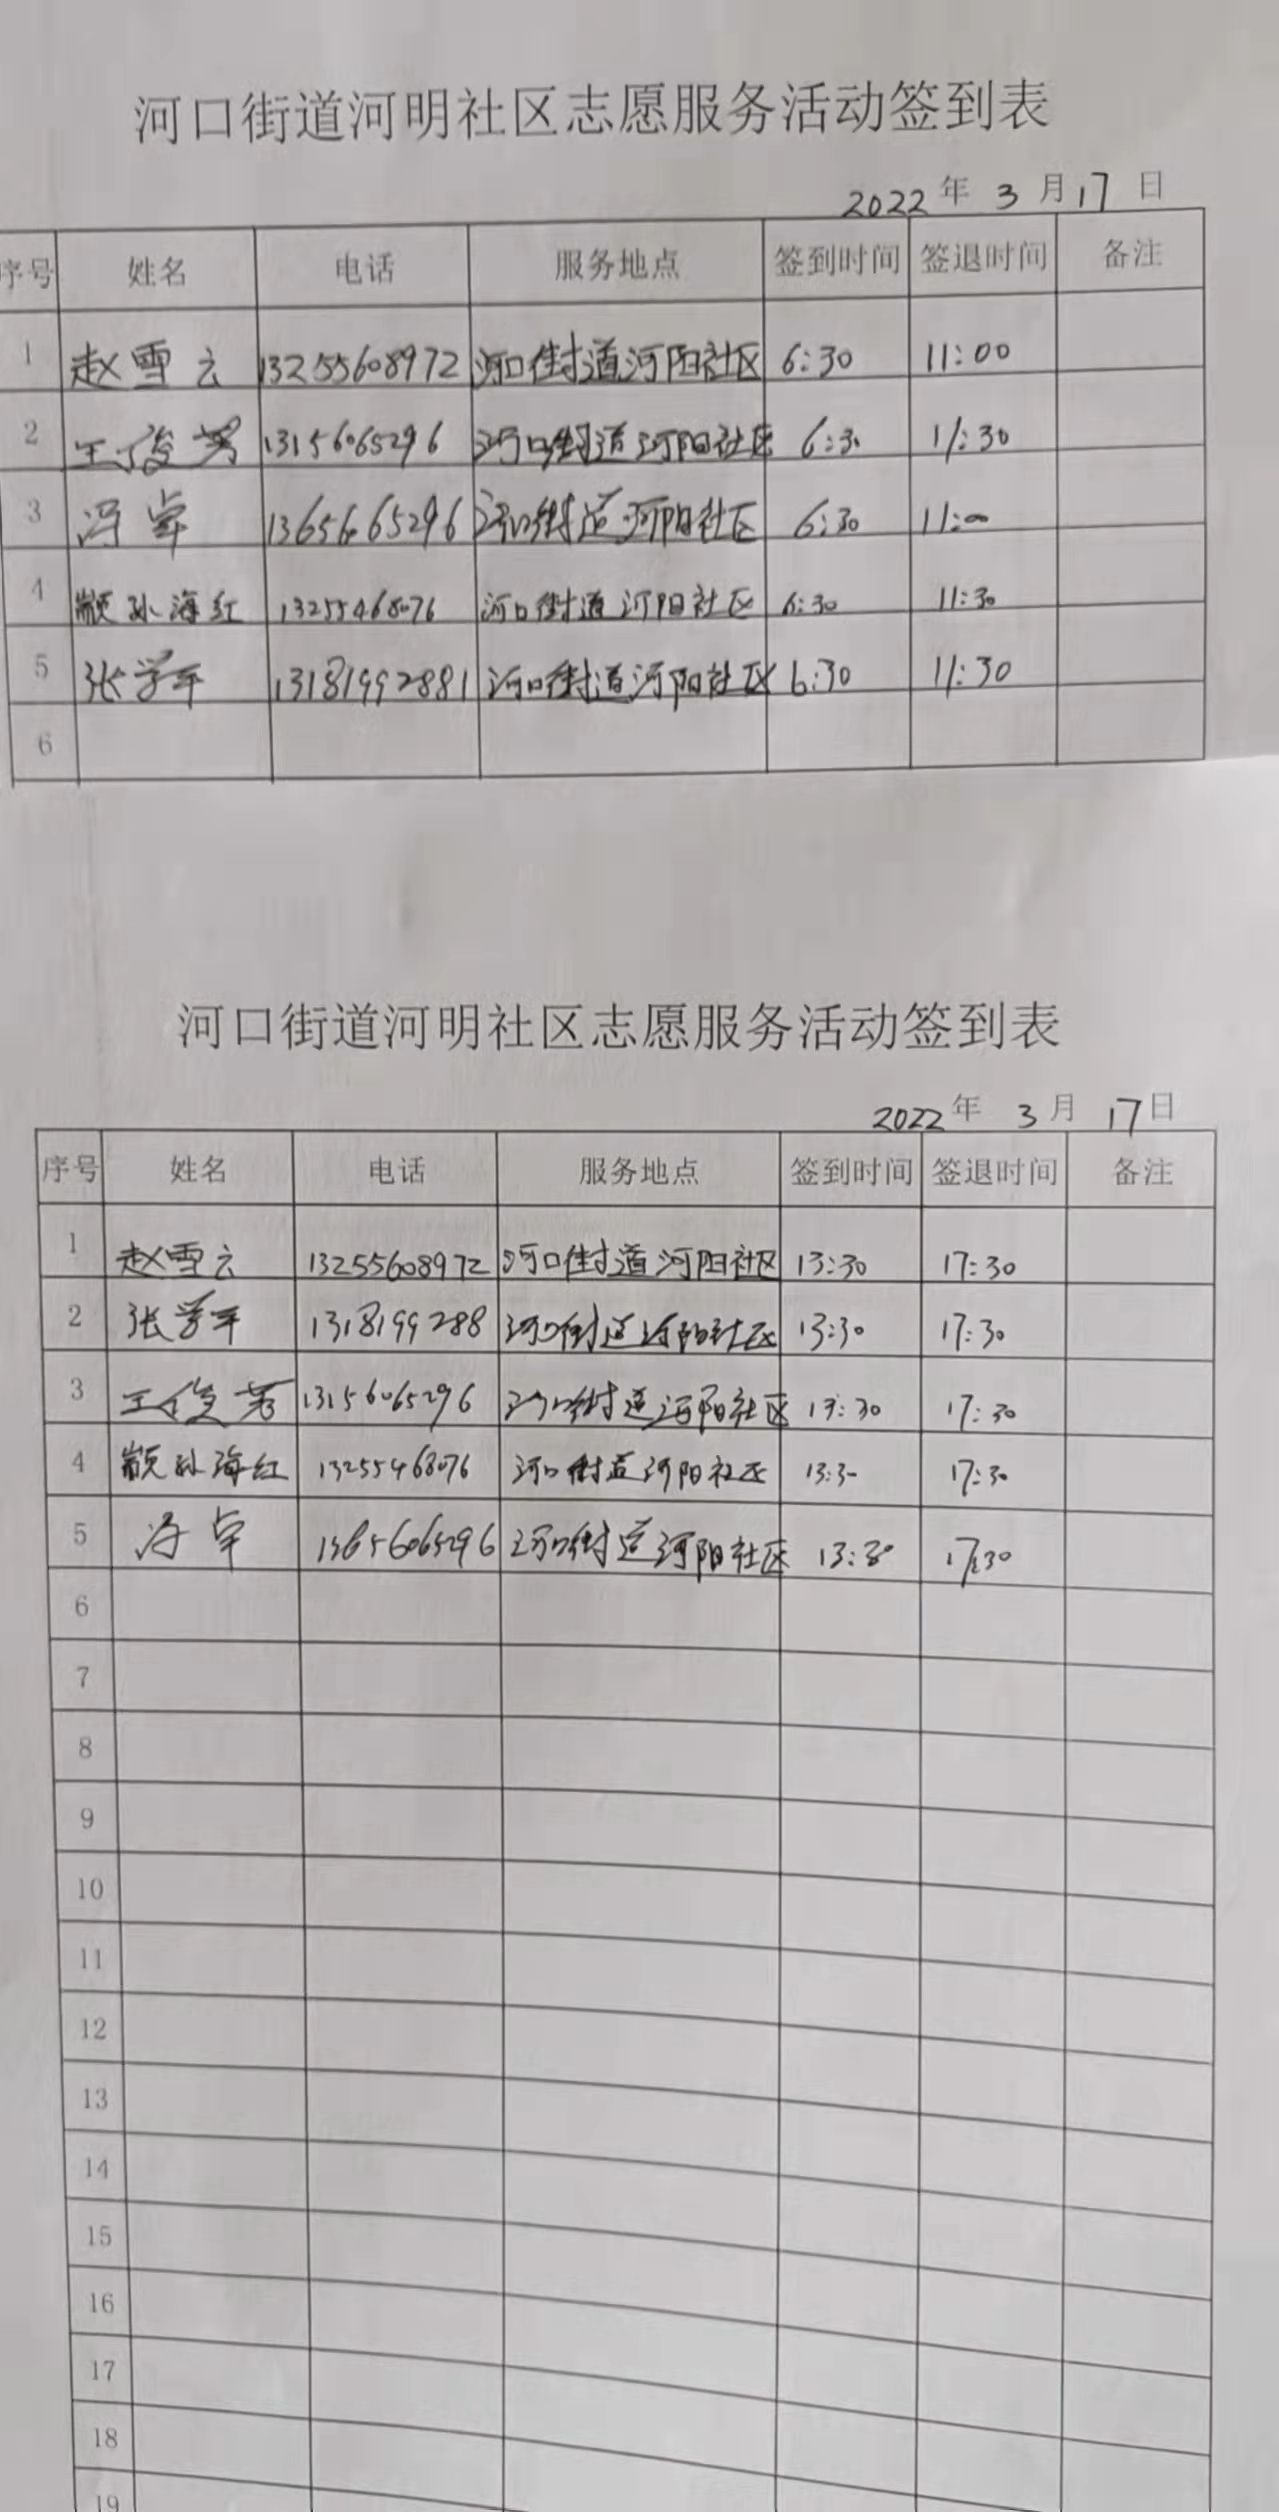 河口街道河明社区志愿服务活动签到表
2022年 3月17日
序号 姓名 电话 服务地点 签到时间 签退时间 备注
1 赵雪云 13255608972 河口街道河阳社区 6:30 11:00
2 王俊芳 13156065296 河口街道河阳社区 6:30 11:30
3 冯卓 13656065296 河口街道河阳社区 6:30 11:00
4 颛孙海红 13255468076 河口街道河阳社区 6:30 11:30
5 张学平 13181992881 河口街道河阳社区 6:30 11:30
6
河口街道河明社区志愿服务活动签到表
2022年 3月 17日
序号 姓名 电话 服务地点 签到时间 签退时间 备注
1 赵雪云 13255608972 河口街道河阳社区 13:30 17:30
2 张学平 1318199288 河口街道河阳社区 13:30 17:30
3 王俊芳 13156065296 河口街道河阳社区 13:30 17:30
4 颛孙海红 13255468076 河口街道河阳社区 13:30 17:30
5 冯卓 13656065296 河口街道河阳社区 13:30 17:30
6
7
8
9
10
11
12
13
14
15
16
17
18
19